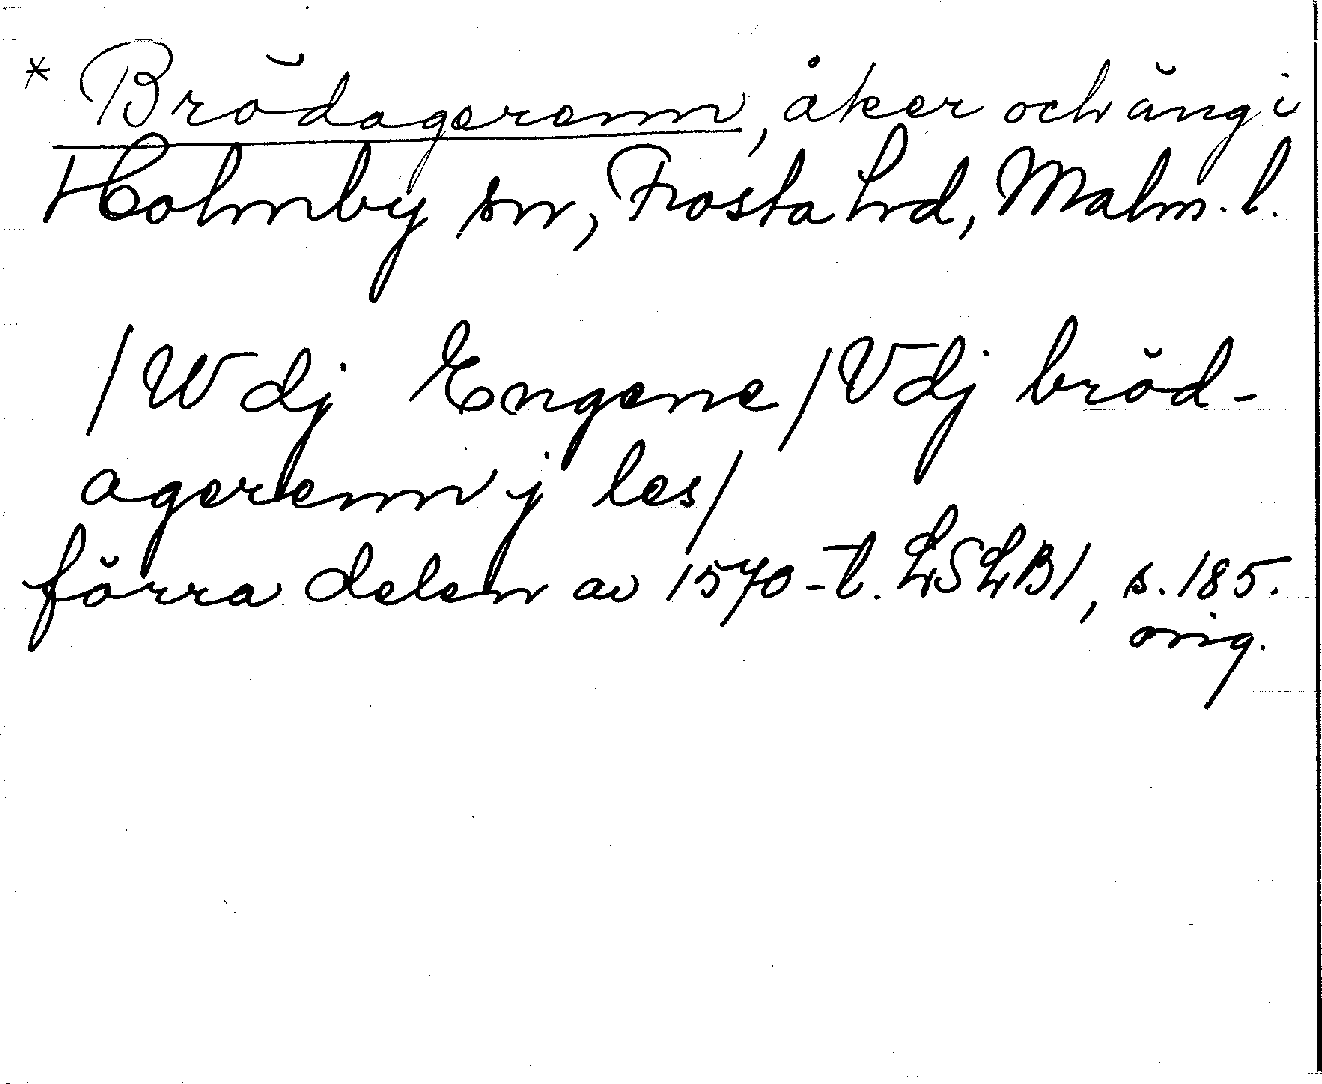 * Brödagerenn, åker och äng i
Holmby sn, Frosta hd, Malm. l.
/Wdj Engene/Vdj bröd-
agerenn j les/
förra delen av 1570-t. LSLB1, s. 185.
orig.